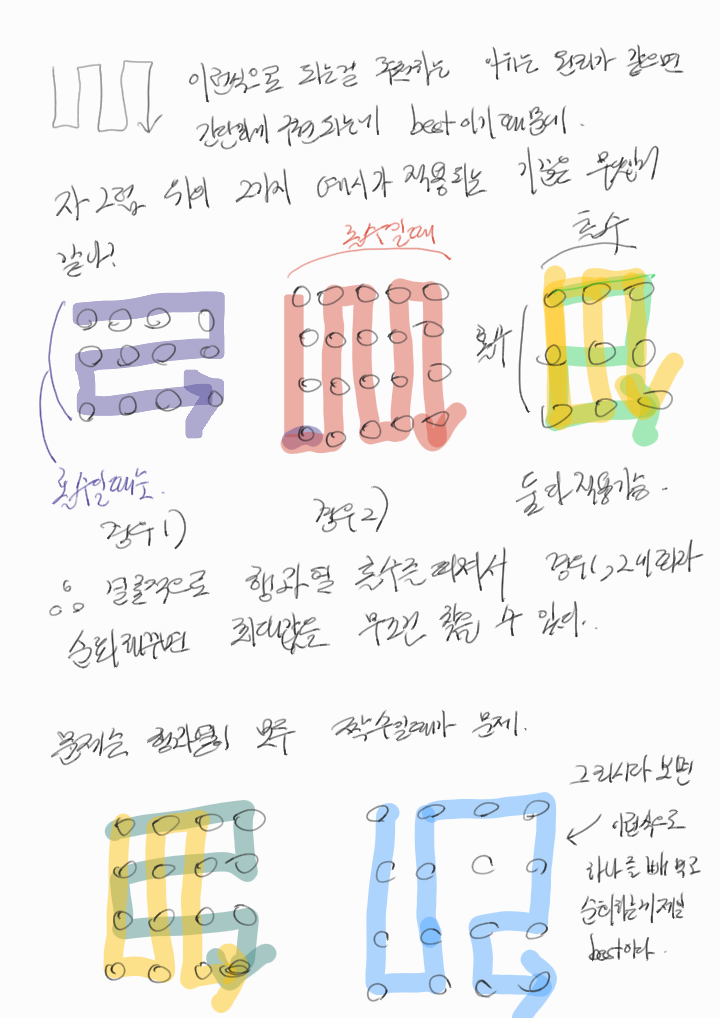 이런식으로 되는걸 추천하는 이유는 원리가 같으면
간단하게 구현되는게 best이기 때문에.
자 그럼 위의 2가지 예시가 적용되는 기준은 무엇인거
같아?
홀수일때
홀수
홀수
홀수일때는.
경우1)
경우2)
둘다 적용가능.
∴ 결론적으로 행과열 홀수를 따져서 경우1, 2에 따라
순회해주면 최대값을 무조건 찾을 수 있어..
문제는 행과열이 모두 짝수일때가 문제.
그리시다 보면
이런식으로
하나를 빼먹고
순회하는게 제일
best이다.